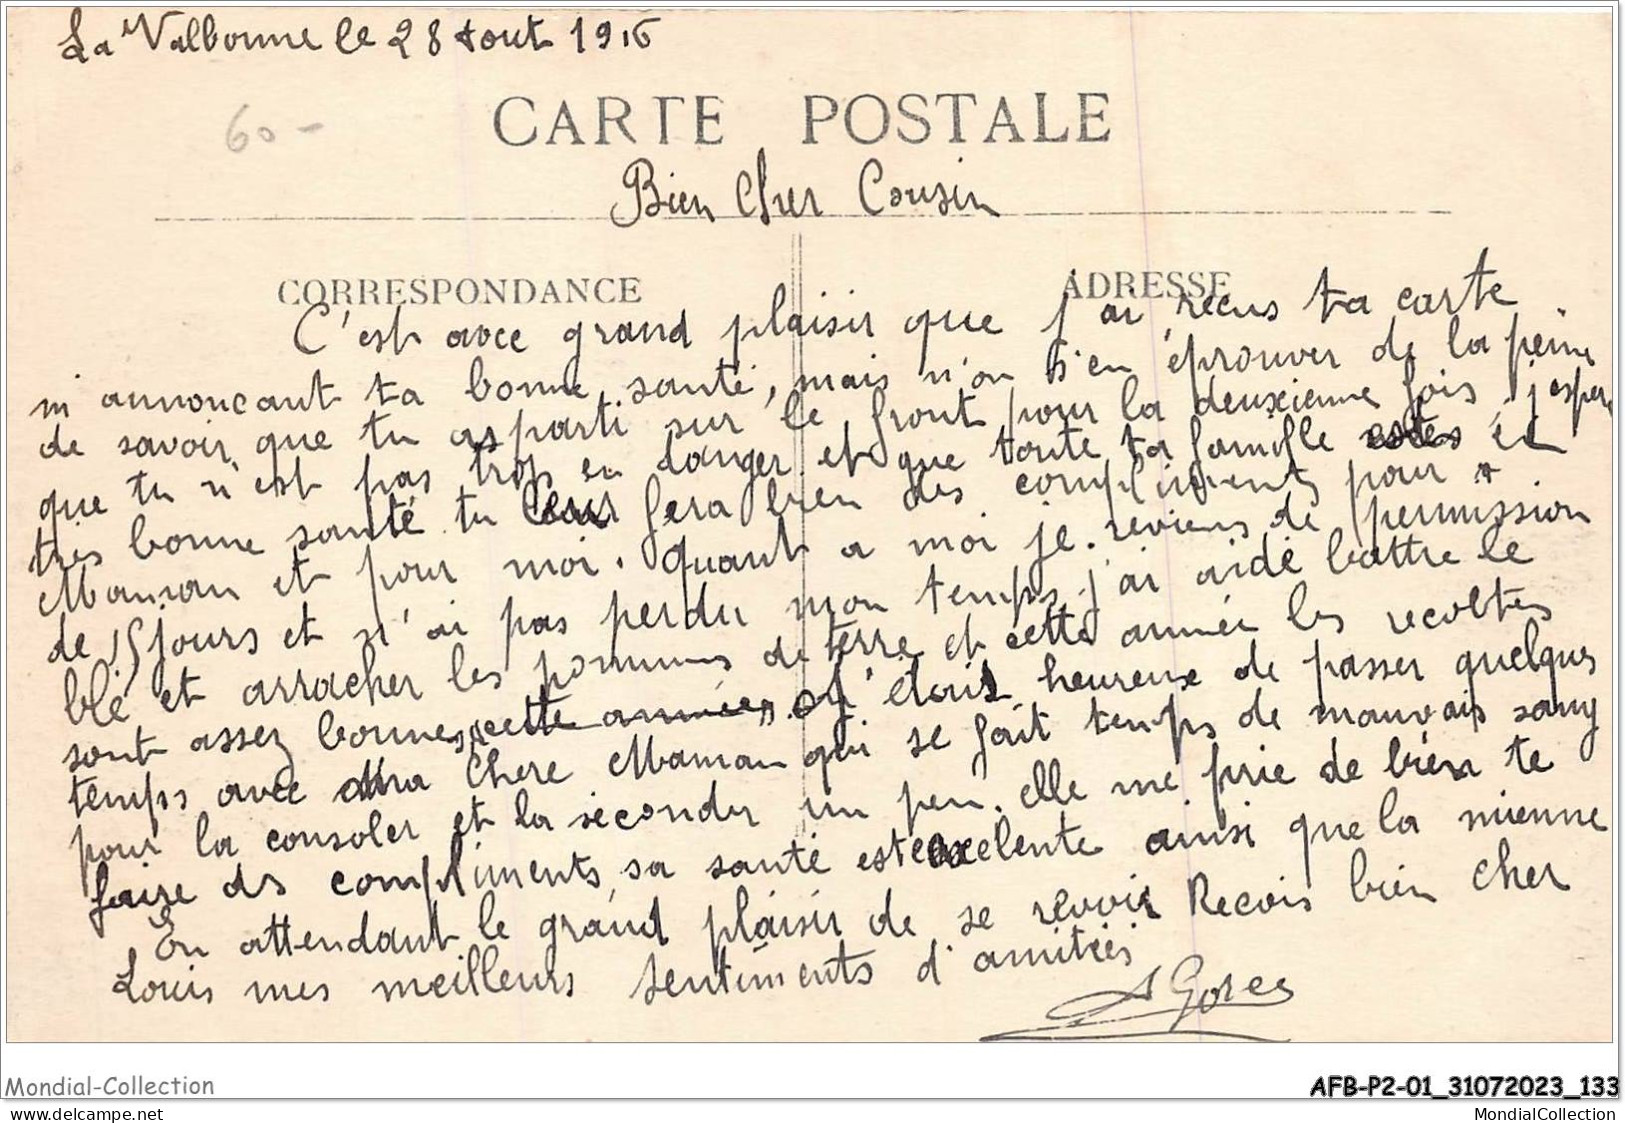 La Valbonne le 28 Aout 1916
60 -
CARTE POSTALE
Bien Cher Cousin
CORRESPONDANCE ADRESSE
C'est avec grand plaisir que j'ai recus ta carte
m annoncant ta bonne santé, mais n'on s'en éprouver de la peine
de savoir que tu as parti sur le front pour la deuxieume fois. j'espere
que tu n'est pas trop en danger et que toute ta famille est en
tres bonne santé tu fera bien des compliments pour
Maman et pour moi. Quant a moi je reviens de permission
de 15 jours et n'ai pas perdu mon temps. j'ai aidé battre le
blé et arracher les pommes de terre et cette année les recoltes
sont assez bonnes cette années. J'étais heureuse de passer quelques
temps avec ma Chere Maman qui se fait temps de mauvais sang
pour la consoler et la seconder un peu. elle me prie de bien te
faire des compliments, sa santé est excelente ainsi que la mienne
En attendant le grand plaisir de se revoir Recois bien cher
Louis mes meilleurs sentiments d'amitiés
Mondial-Collection
AFB-P2-01_31072023_133
https://www.delcampe.net
MondialCollection